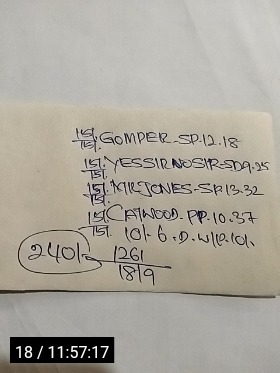 15/. GOMPER-SP.12.18
15/.
15/. YESSIRNOSIR-SD9.25
15/.
15/. MRJONES-SP.13.32
15/.
15/. CATWOOD.PP.10.37
15/. 10/- 6.D.W/P.10/.
240/- 1261
1819
18 / 11:57:17